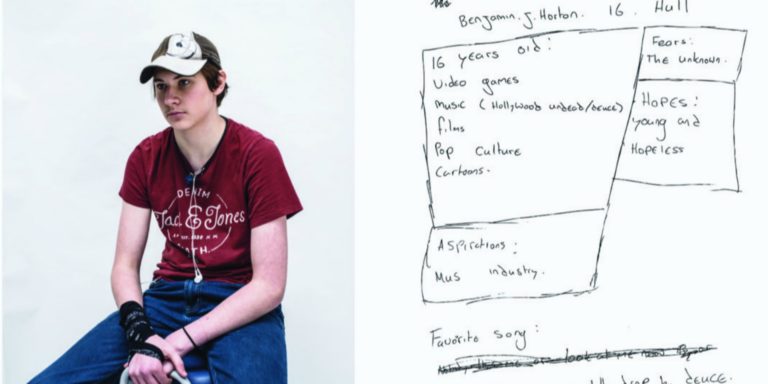 Benjamin.J.Horton. 16. Hull
16 years old:
Video games
Music (Hollywood undead/deuce)
films
Pop Culture
Cartoons.
Fears:
The unknown.
HOPES:
young and
HopeLESS
Aspirations:
Mus industry.
Favorite song:
look at me now
drop by deuce.
DENIM
Jack & Jones